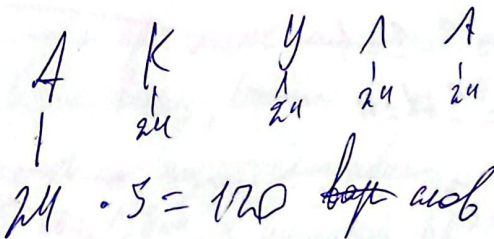 А К У Л А
24 24 24 24
24 · 5 = 120 слов